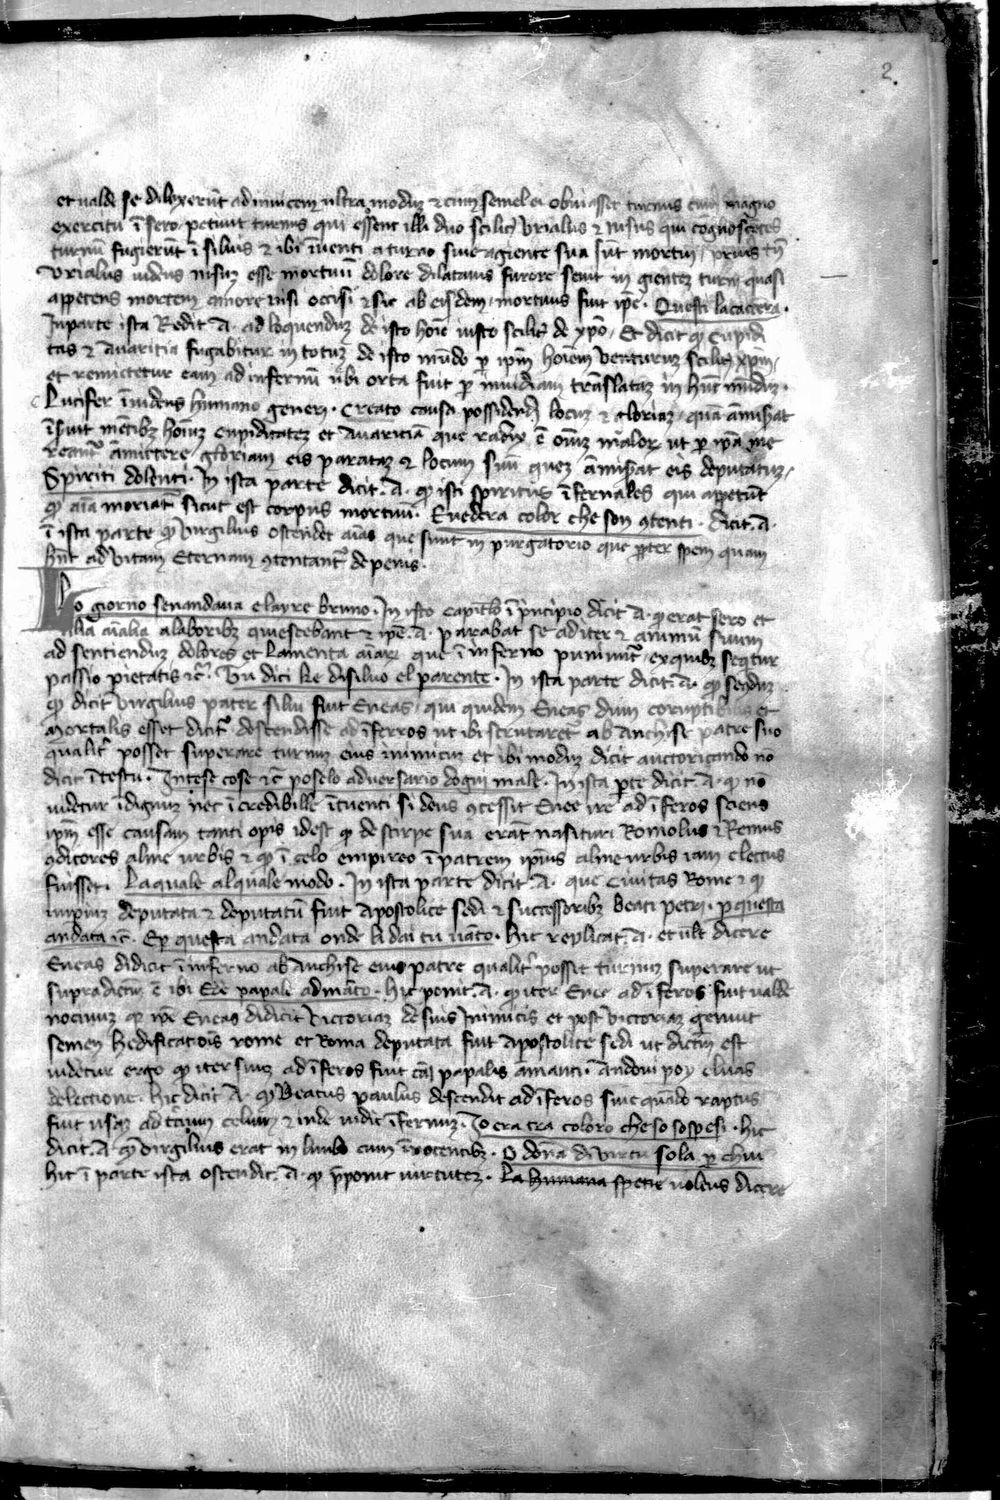 2.
et valde se dilexerūt ad invicem ultra moduȝ & cum semel ei obviasset turnus cum magno
exercitu ī sero petivit turnus qui essent illi duo scilicȝ Vrialus & nisus qui cōgnoscētes
turnū fugierūt ī silvis & ibi īventi a turno sive a gente sua sūt mortui prius tn̄
Vrialus videns nisuȝ esse mortuū dolore dilatatus furore sevit in genteȝ turni quasi
appetens mortem amore nisi occisi & sic ab eisdem mortuus fuit ip̄e. Questi la cacera.
In parte ista Redit .A. ad loquenduȝ de isto hoīe iusto scilicȝ de xp̄o, Et dicit ꝙ Cupidi
tas & Avaritia fugabitur in totuȝ de isto mūdo ꝑ ip̄m hoīem venturuȝ scilicȝ xp̄m,
et remictetur eam ad infernū ubi orta fuit ꝑ invidiam trāslataȝ in hūc mūduȝ.
Lucifer īvidens humano generi. Creato causa possidendi locuȝ & gloriaȝ quā āmisat
ī suit mētibȝ hoīuȝ cupidicateȝ et Avaritiā que radix ē oīuȝ maloȝ ut ꝑ ip̄ā me
reant᷑ āmictere gloriam eis parataȝ & locum suū queȝ āmisat eis deputatuȝ,
Spiriti dolenti. In ista parte dicit .A. ꝙ isti spiritus īfernales qui appetūt
ꝙ aīa moriat᷑ sicut est corpus mortuū. E vedera color che son ꝯtenti. dicit .A.
ī ista parte ꝙ Virgilius ostendet aīas que sunt in purgatorio que ꝓpter spem quam
hn̄t ad vitam Eternam ꝯtentant᷑ de penis.
Lo giorno senandava e layre bruno. In isto capitl̄o ī principio dicit .A. ꝙ erat sero et
alia aīalia a laboribȝ quiescebant & ip̄e .A. parabat se ad iter & animū suum
ad sentienduȝ dolores et lamenta aīaȝ que ī inferno puniunt᷑, ex quibȝ seqtur
passio pietatis &c̄. Tu dici ke di siluo el parente. In ista parte dicit .A. ꝙ secūduȝ
ꝙ dicit Virgilius pater silvii fuit Eneas, qui quidem Eneas dum coruptibilis et
mortalis esset dicit᷑ descendisse ad īferros ut ibi scrutaret᷑ ab anchise patre suo
qualit᷑ posset superare turnuȝ eius inimicuȝ et ibi moduȝ dicit auctoricando nō
dicit ī testu. Intese cose &c̄ poselo adversario dogni male. In ista ꝑte dicit .A. ꝙ nō
videtur īdignuȝ nec īcredibille ītuenti si deus ꝯcessit Enee ire ad īferos sciens
ip̄m esse causam tanti opis idest ꝙ de stirpe sua erāt nasituri Romolus & Remus
ꝯditores alme urbis & ꝙ ī celo empireo ī patrem ip̄ius alme urbis iam electus
fuisset. La quale al quale modo. In ista parte dicit .A. que Civitas Rome & ꝙ
impiuȝ deputata & deputatū fuit Apostolice sedi & successoribȝ beati petri. ꝑ questa
andata &c̄. Eꝑ questa andata onde li dai tu vāto. Hic replicat .A. et vult dicere
Eneas didicit ī inferno ab Anchise eius patre qualit᷑ possit turnuȝ superare ut
supradictuȝ ē ibi E de papale admāto. Hic ponit .A. ꝙ iter Enee ad īferos fuit valde
nocivuȝ ꝙ ip̄e Eneas didicit Victoriaȝ de suis Inimicis et post Victoriaȝ genuit
semen hedificatoīs rome et Roma deputata fuit Apostolice sedi ut dictū est
videtur ergo ꝙ iter suuȝ ad īferos fuit cā papalis amanti. Andovi poy elvas
delectione. hic dicit .A. ꝙ Beatus paulus descendit ad īferos sive quādo raptus
fuit usqȝ ad tercium celum & inde vidit īfernuȝ. Io era tra coloro che so sospesi. hic
dicit .A. ꝙ Virgilius erat in limbo cum īnocentibȝ. O dōna di virtu sola ꝑ chui
hic ī parte ista ostendit .A. ꝙ p̄ponit virtuteȝ. La humana spetie volens dicere